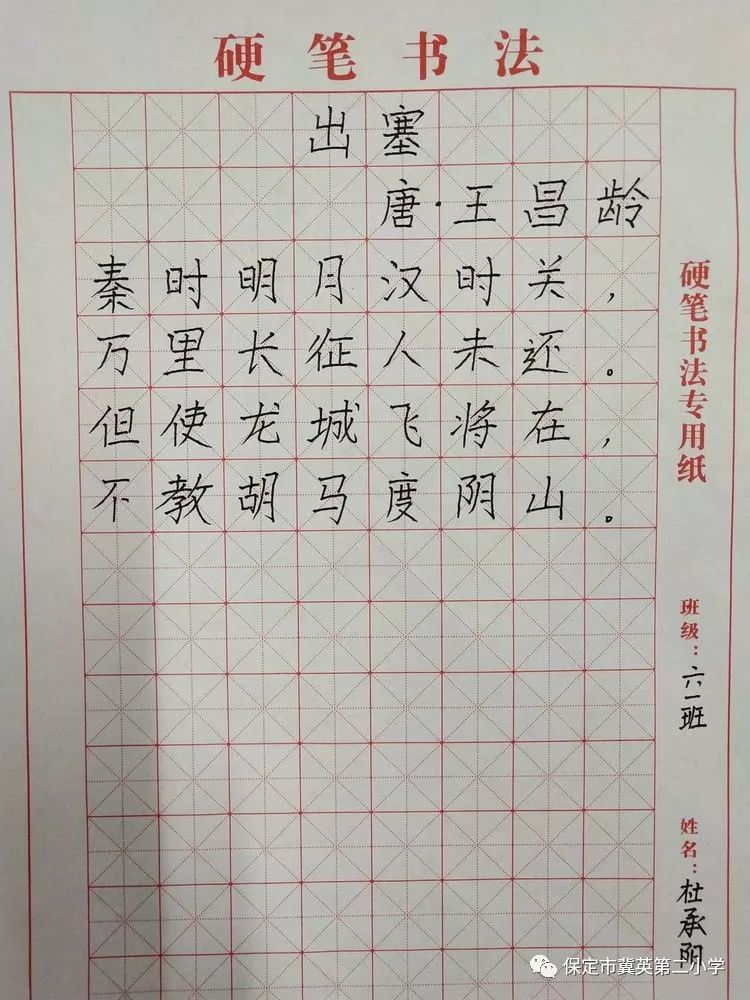 硬笔书法
出塞
唐·王昌龄
秦时明月汉时关，
万里长征人未还。
但使龙城飞将在，
不教胡马度阴山。
硬笔书法专用纸
班级：六一班
姓名：杜承阳
保定市冀英第二小学